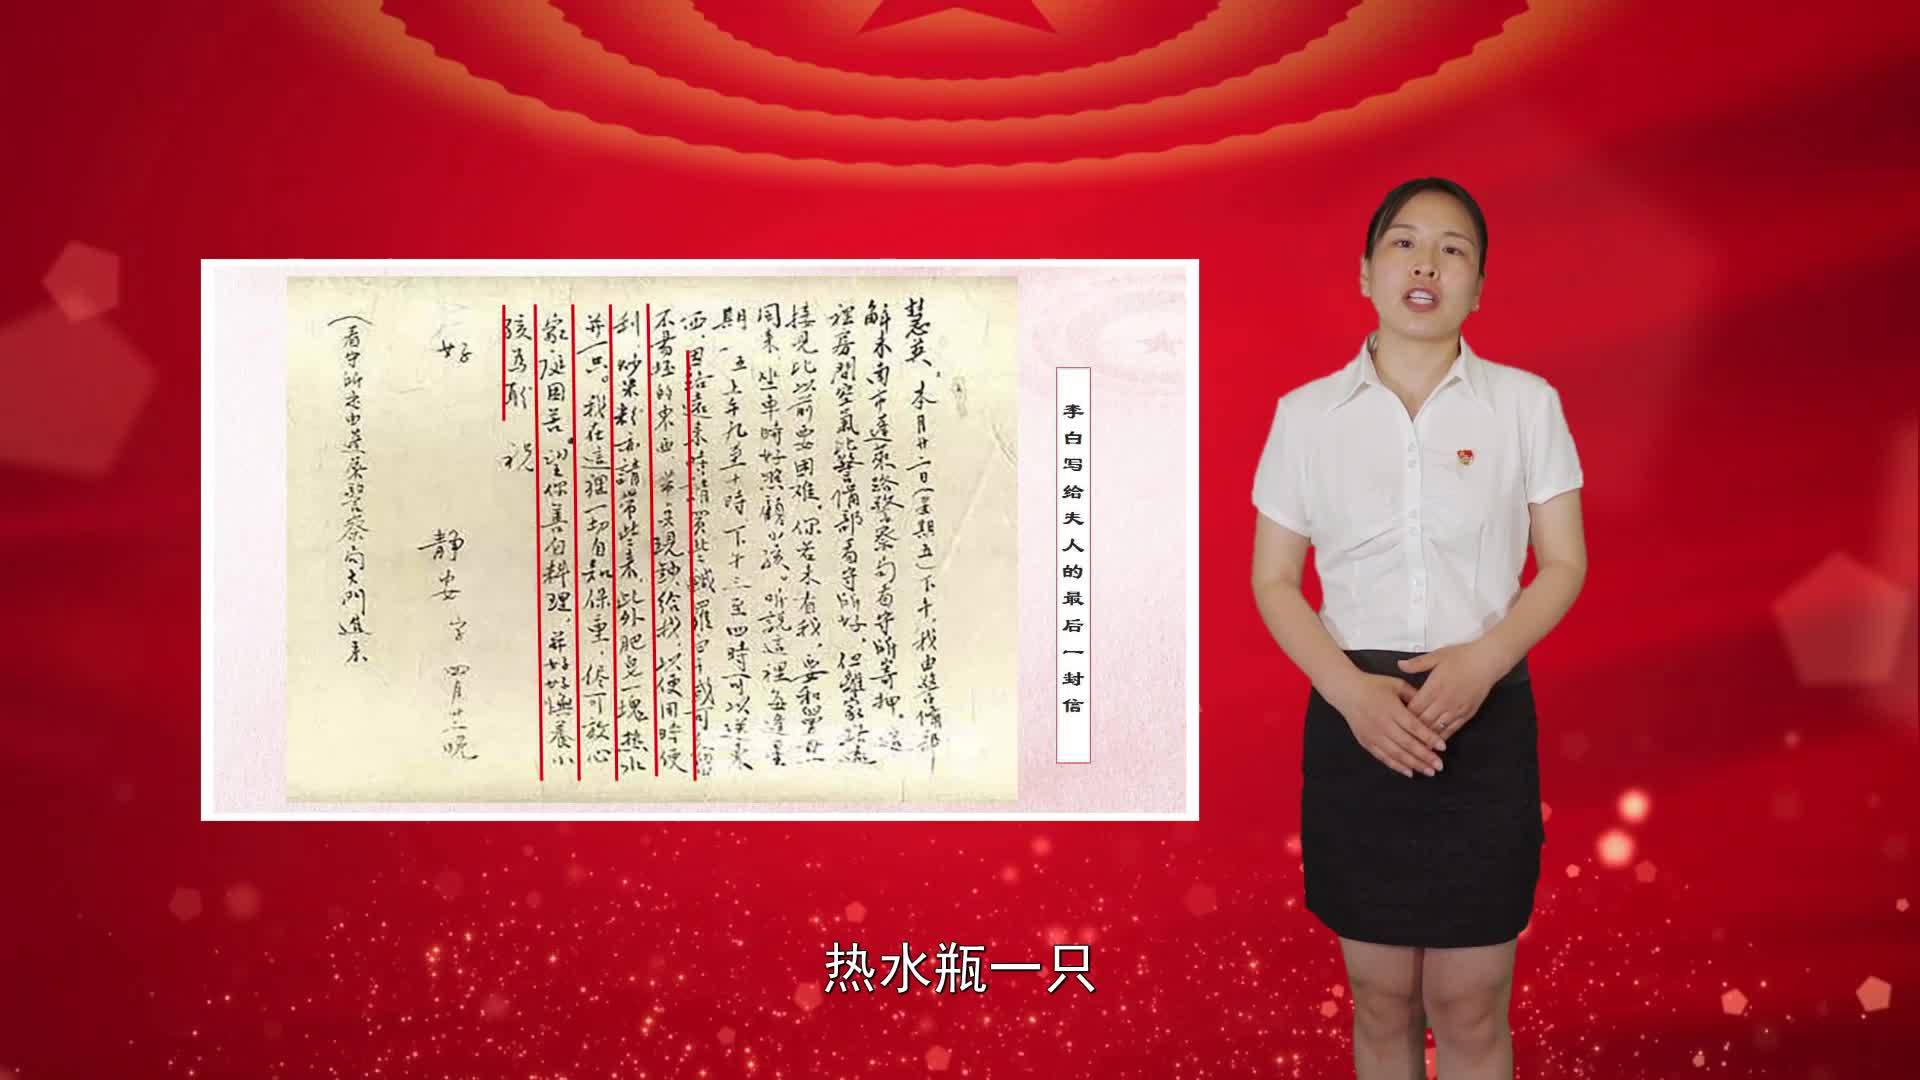 慧英、本月廿二日(星期五)下午,我由警備部
解來南市蓬萊路警察局看守所寄押。這
裡房間空氣比警備部看守所好。但離家路遠
接見比以前要困難。你若來看我,要和
同來,坐車時好照顧小孩。听說這裡每逢星
期一、五上午九至十時下午三至四時可以送東
西,因路遠來時請買些
不易壞的東西,帶 現鈔給我,以便用時便
利,炒米粉亦請帶些來,此外肥皂一塊热水
瓶一只。我在這裡一切自知保重,侭可放心
家庭困苦。望你善自料理,并好好撫養小
孩為盼 祝
好
靜安 字 四月廿二晚
(看守所是由蓬萊警察局大門進來
李白写给夫人的最后一封信
热水瓶一只